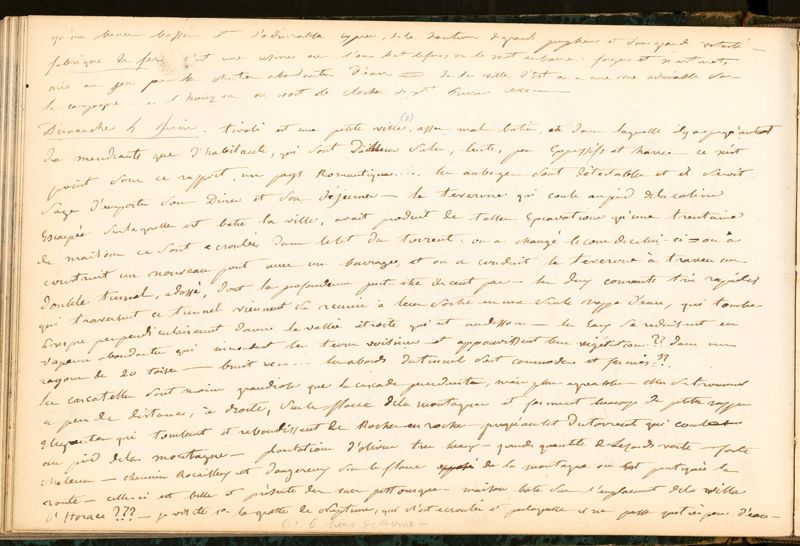 qu'une beau bassin et d'admirables cyprès, de la hauteur des grands peupliers et d'une grande vetusté —
fabrique de fer c'est une usine où l'on bat le fer, on le met en barre. forges et marteaux
mis en jeu par la chute abondante d'eau — de la ville d'Est on a une vue admirable sur
la campagne. à l'horizon on voit le clocher de St Pierre
Dimanche 4 Juin. tivoli est une petite ville, (1) assez mal batie, et dans laquelle il y a presqu'autant
de mendiants que d'habitants, qui sont d'ailleurs sales, lents, peu expressifs et — ce n'est
point sous ce rapport, un pays Romantique.... les auberges sont détestables et il seroit
sage d'emporter son Diner et son déjeuner — le teverone qui coule au pied de la colline
Escarpée sur laquelle est batie la ville, avait produit de telles Excavations qu'une trentaine
de maisons se sont écroulées dans le lit du torrent. on a changé le cours de celui-ci — on a
construit un nouveau pont avec un barrage, et on a conduit le teverone à travers un
double tunnel, adossé, dont la profondeur peut être de cent pas — les deux courants très rapides
qui traversent ce tunnel viennent se réunir à leur sortie en une seule nappe d'eau, qui tombe
presque perpendiculairement dans la vallée étroite qui est au dessous — les Eaux se réduisent en
vapeurs abondantes qui inondent les terres voisines et appauvrissent leur végétation?? dans un
rayon de 20 toises — bruit .... les abords du tunnel sont commodes et fermés??
les cascatelles sont moins grandioses que la cascade precedente, mais plus agréables — elles se trouvent
à peu de distance, à droite, sur le flanc de la montagne et forment beaucoup de petites nappes
élégantes qui tombent et rebondissent de Roche en roche jusqu'au lit du torrent qui
au pied de la montagne — plantation d'oliviers très beaux — grande quantité de Lézards verts — forte
chaleur — chemin Rocailleux et dangereux sur le flanc opposé de la montagne où est pratiquée la
route — celle-ci est belle et présente des vues pittoresques — maison batie sur l'emplacement de la villa
d'Horace ??? — je visite la grotte de Neptune, qui s'est écroulée et par laquelle il ne passe que très peu d'eau —
(1) 6 lieues de Rome —